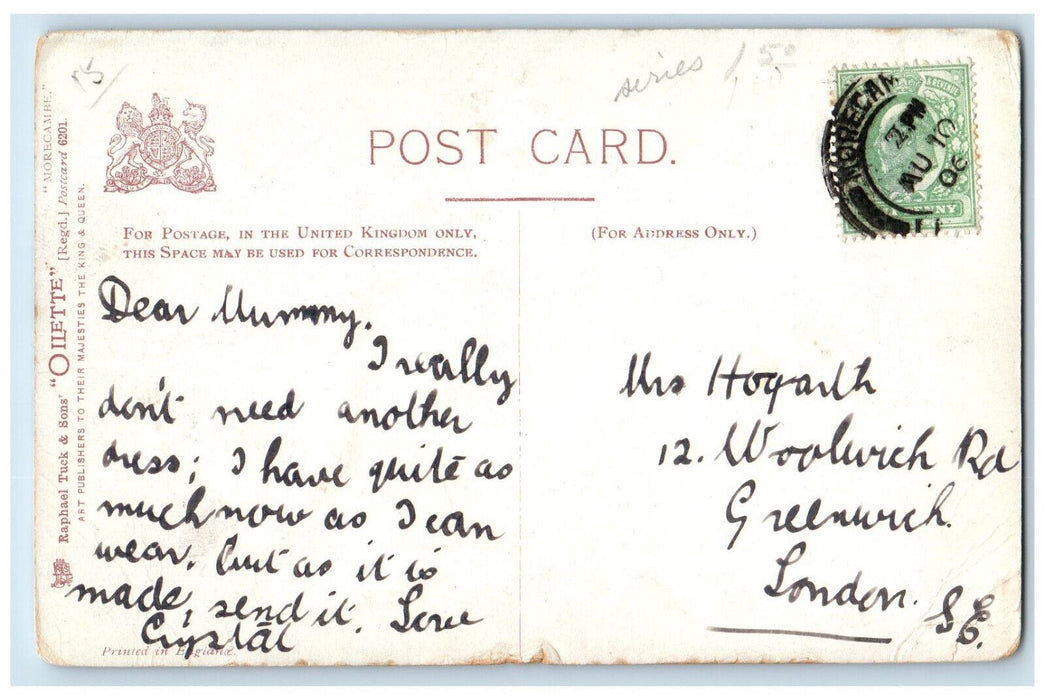 15/
series 1 50
"MORECAMBE."
Raphael Tuck & Sons' "OILETTE" [Regd.] Postcard 6201.
ART PUBLISHERS TO THEIR MAJESTIES THE KING & QUEEN.
POST CARD.
FOR POSTAGE, IN THE UNITED KINGDOM ONLY,
THIS SPACE MAY BE USED FOR CORRESPONDENCE.
(FOR ADDRESS ONLY.)
MORECAM
2 PM
AU 10
06
11
& REVENUE
PENNY
Dear Mummy.
I really
don't need another
dress; I have quite as
much now as I can
wear, but as it is
made, send it. Love
Crystal
Printed in England.
Mrs Hogarth
12. Woolwich Rd
Greenwich.
London. S.E.